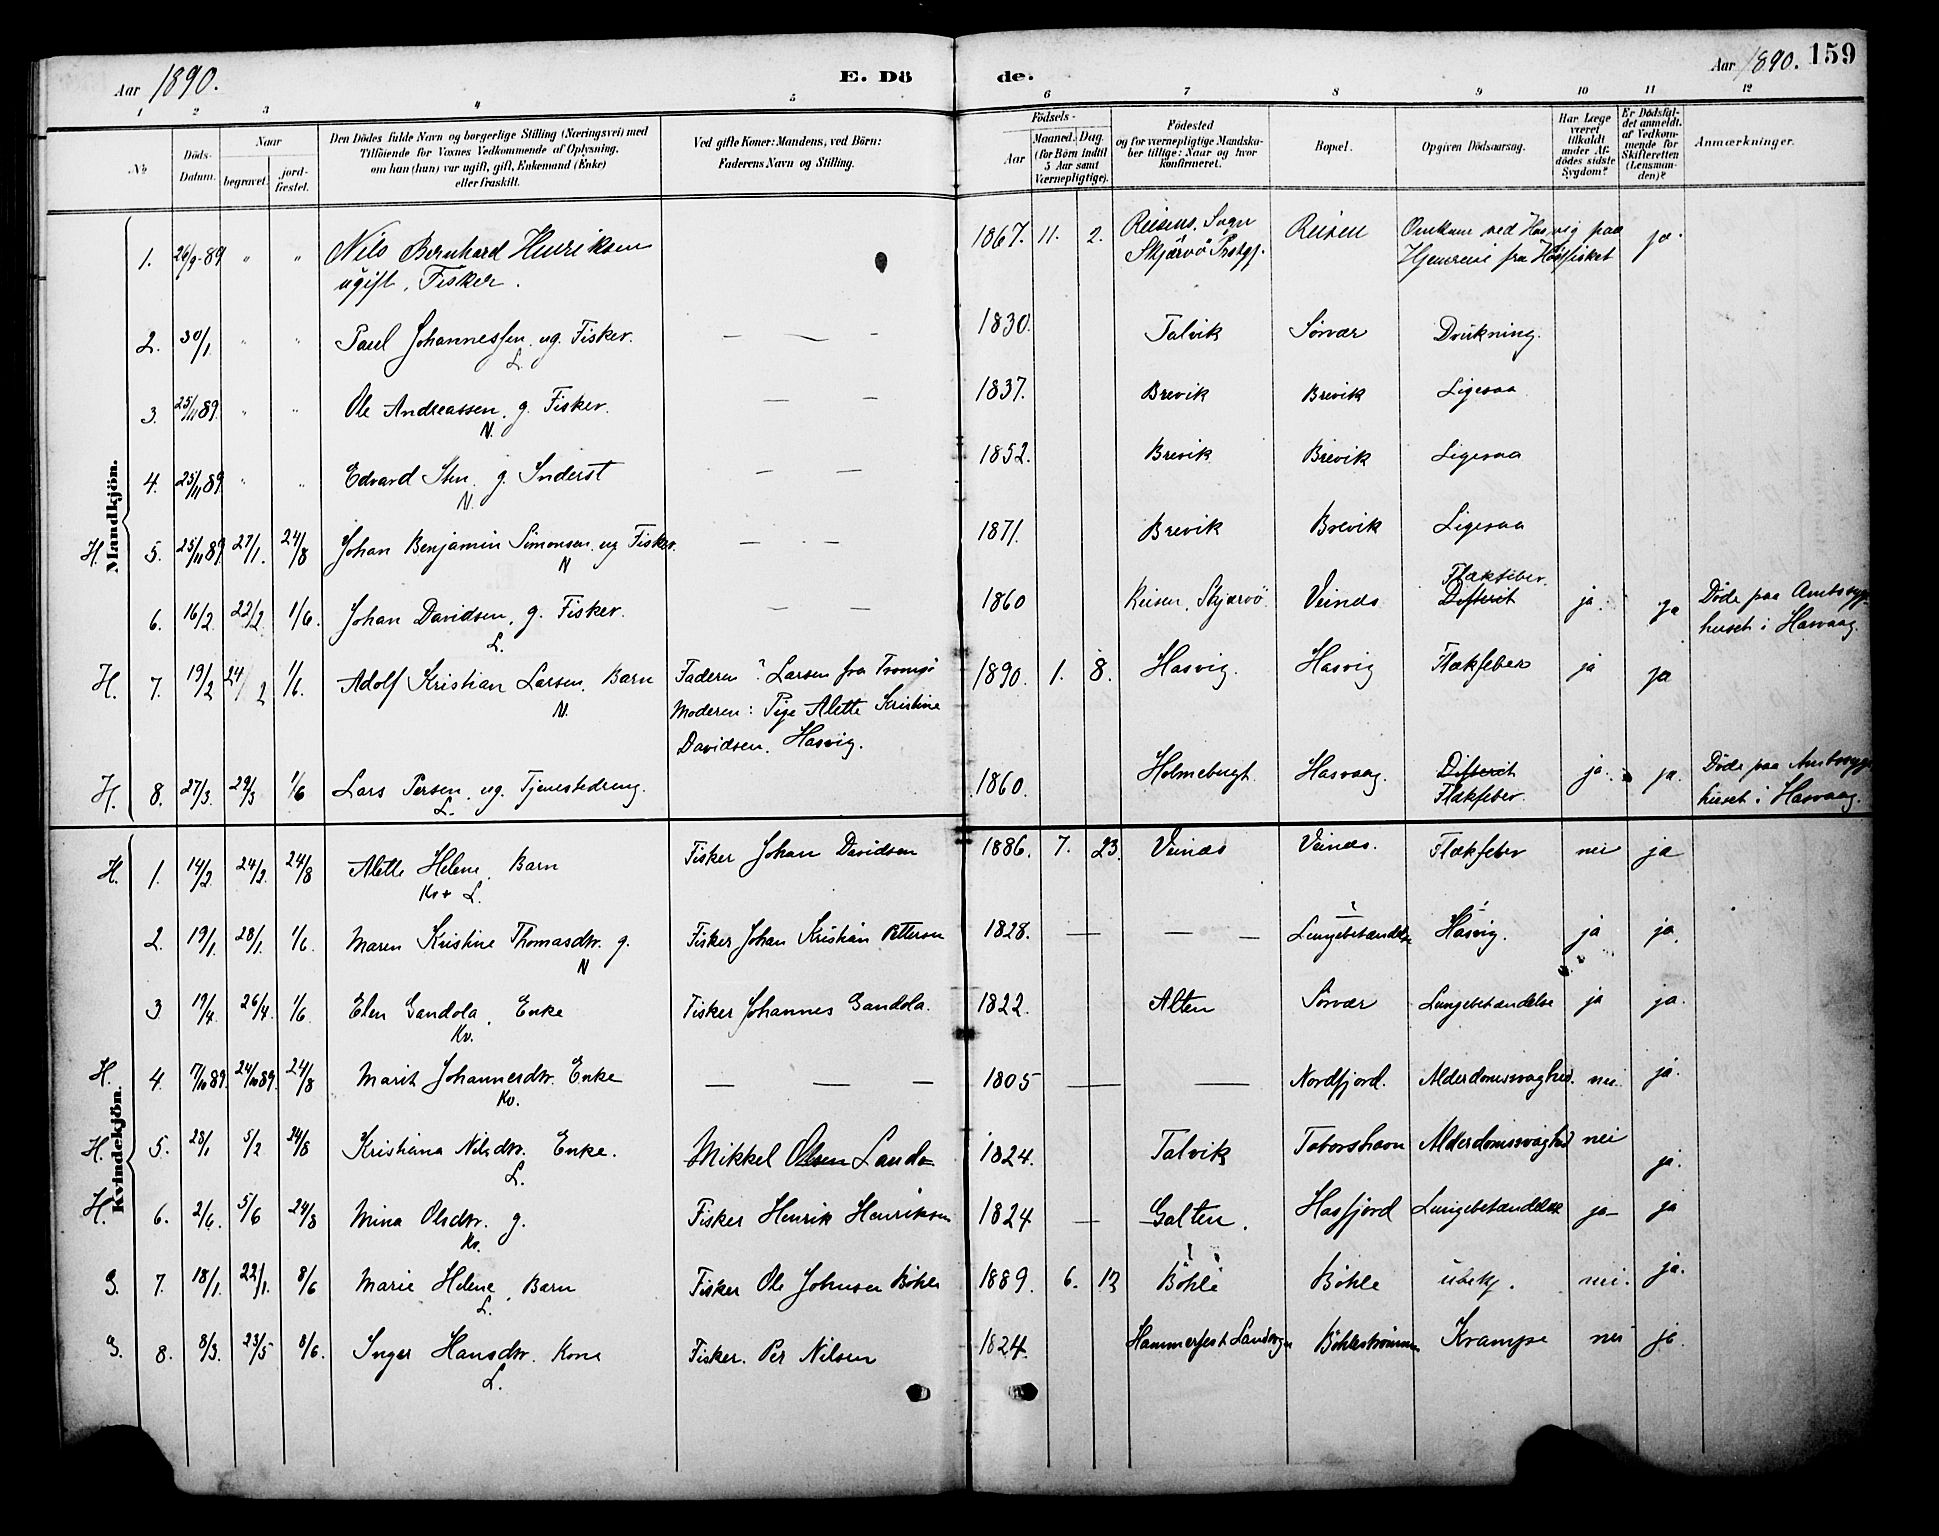 Aar 1890. E. Dö de. Aar 1890. 159
1 2 3 4 5 6 7 8 9 10 11 12
No Döds-Datum. Naar begravet. jord-fæstet. Den Dödes fulde Navn og borgerlige Stilling (Næringsvei) med Tilföiende for Voxnes Vedkommende af Oplysning, om han (hun) var ugift, gift, Enkemand (Enke) eller fraskilt. Ved gifte Koner: Mandens, ved Börn: Faderens Navn og Stilling. Födsels- Aar Maaned. Dag. (for Börn indtil 5 Aar samt Værnepligtige). Födested og for værnepligtige Mandskaber tillige: Naar og hvor Konfirmeret. Bopæl. Opgiven Dödsaarsag. Har Læge været tilkaldt under Afdödes sidste Sygdom? Er Dödsfaldet anmeldt af Vedkommende for Skifteretten (Lensmanden)? Anmærkninger.
Mandkjön.
1. 26/9-89 " " Nils Bernhard Henriksen 1867. 11. 2. Reisens Sogn Reisen Omkom ved Hasvig paa ja.
ugift, Fisker. Skjærvö Prstgj. Hjemreise fra Höstfisket
2. 30/1 " " Paul Johannessen, ug. Fisker. — — — 1830. Talvik Sörvær Drukning.
L.
3. 25/11 89. " " Ole Andreassen, g. Fisker. — — 1837. Brevik Brevik Ligesaa
N.
4. 25/11 89 " " Edvard Sten, g. Inderst — — 1852. Brevik Brevik Ligesaa
N.
H. 5. 25/11 89. 27/1. 24/8 Johan Benjamin Simonsen, ug Fisker. — — 1871. Brevik Brevik Ligesaa
N
Flækfeber.
6. 16/2. 22/2. 1/6. Johan Davidsen, g. Fisker. — — 1860 Reisen, Skjærvö. Veines Difterit ja. ja Döde paa Amtssyge-
L. huset i Hasvaag.
H. 7. 19/2 24/2 1/6. Adolf Kristian Larsen, Barn Faderen ? Larsen fra Tromsö 1890. 1. 8. Hasvig. Hasvig Flækfeber ja ja
N. Moderen: Pige Alette Kristine
Davidsen, Hasvig.
H. 8. 27/3. 29/3 1/6 Lars Persen, ug. Tjenestedreng. 1860. Holmebugt. Hasvaag. Difterit ja. ja. Döde paa Amtssyge-
L. Flækfeber. huset i Hasvaag.
Kvindekjön.
H. 1. 14/2. 24/2. 24/8 Alette Helene, Barn Fisker Johan Davidsen 1886. 7. 23. Veines Veines. Flækfeber nei ja
Kv+ L.
2. 19/1. 28/1. 1/6. Maren Kristine Thomasdtr. g. Fisker Johan Kristian Pettersen 1828. — — — Lungebetændelse Hasvig. ja ja.
N
3 19/4. 26/4. 1/6. Elen Gandola, Enke Fisker Johannes Gandola. 1822. Alten Sörvær Lungebetændelse ja ja.
Kv.
H. 4. 7/10 89. 24/10 89. 24/8 Marit Johannesdtr. Enke — — — 1805 — — Nordfjord. Alderdomssvaghed. nei ja.
Kv.
H. 5. 28/1 5/2 24/8 Kristiana Nilsdtr. Enke. Mikkel Olsen Lando 1824. Talvik Alderdomssvaghed nei ja.
L.
H. 6. 2/6. 5/6 24/8 Mina Olsdtr. g. Fisker Henrik Henriksen 1824 — Galten. Hasfjord Lungebetændelse ja- ja
Kv.
G. 7. 18/1. 22/1. 8/6 Marie Helene, Barn Fisker Ole Johnsen Böhle 1889. 6. Böhle Böhle ubekj. nei. ja.
L.
G. 8. 8/3. 23/5 8/6. Inger Hansdtr. Kone Fisker. Per Nilsen 1824. Hammerfest Landsogn Böhleströmmen Krampe nei ja.
L.